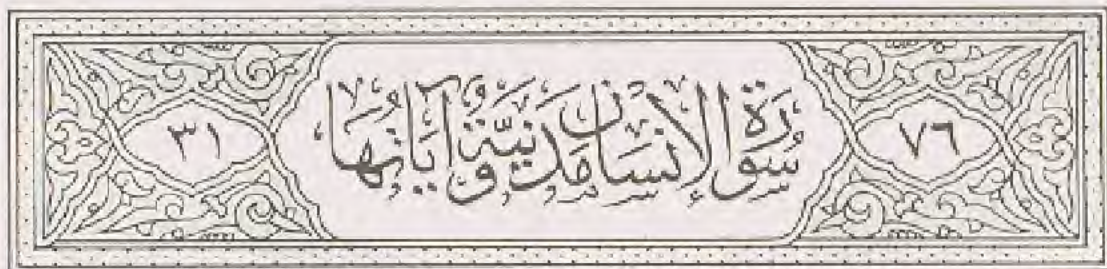 ٧٦ سُورَةُ الإِنسَانِ مَدَنِيَّة وَآيَاتُهَا ٣١